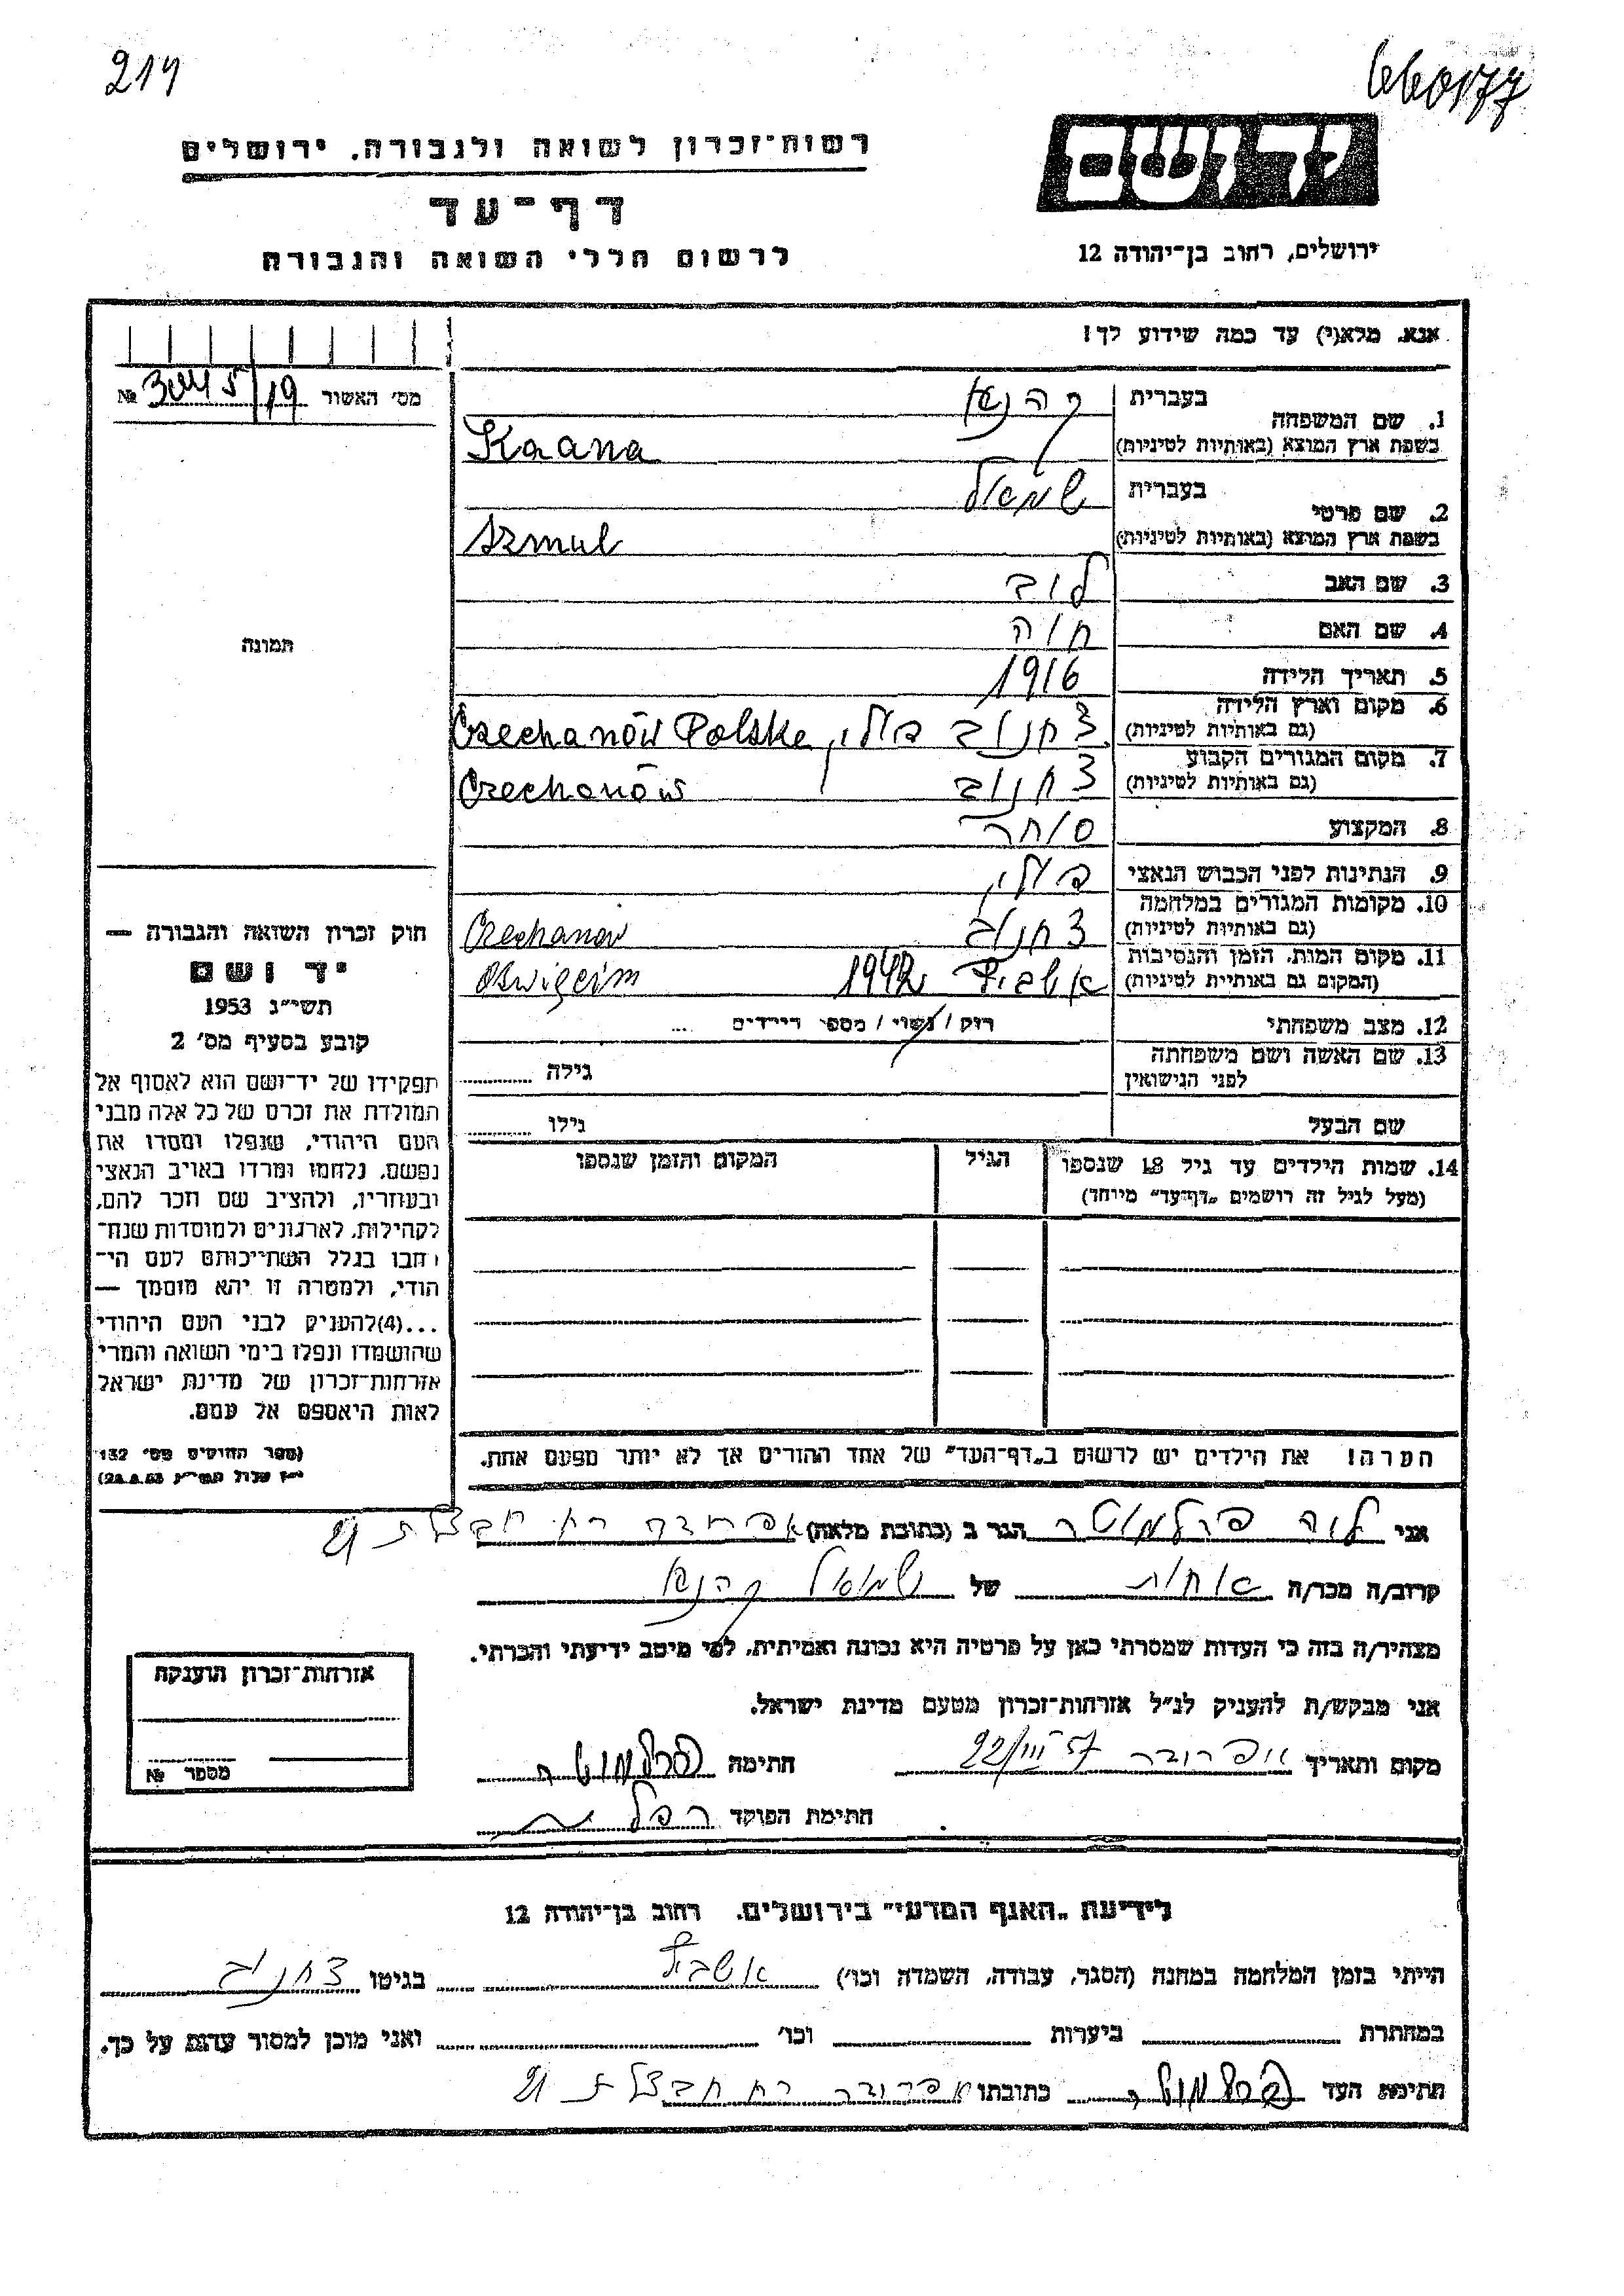 214
660177
רשות־זכרון לשואה ולגבורה. ירושלים
דף־עד
לרשום חללי השואה והגבורה
יד ושם
ירושלים, רחוב בן־יהודה 12
אנא. מלא(י) עד כמה שידוע לך!
מס' האשור 19/ №
1. שם המשפחה
בעברית קהנא
בשפת ארץ המוצא (באותיות לטיניות) Kaana
2. שם פרטי
בעברית שמואל
בשפת ארץ המוצא (באותיות לטיניות) Szmul
3. שם האב לוב
4. שם האם חוה
5. תאריך הלידה 1916
6. מקום וארץ הלידה
(גם באותיות לטיניות) צחנוב פולין Czechanów Polske
7. מקום המגורים הקבוע
(גם באותיות לטיניות) צחנוב Czechanów
8. המקצוע סוחר
9. הנתינות לפני הכבוש הנאצי פולין
10. מקומות המגורים במלחמה
(גם באותיות לטיניות) צחנוב Czechanow
11. מקום המות. הזמן והנסיבות
(המקום גם באותיית לטיניות) אושביץ 1942 Oswięcim
12. מצב משפחתי רוק / נשוי / מספר הילדים ...
13. שם האשה ושם משפחתה
לפני הנישואין גילה
שם הבעל גילו
14. שמות הילדים עד גיל 18 שנספו
(מעל לגיל זה רושמים „דף־עד" מיוחד)
הגיל
המקום והזמן שנספו
הערה! את הילדים יש לרשום ב„דף־העד" של אחד ההורים אך לא יותר מפעם אחת.
תמונה
חוק זכרון השואה והגבורה —
יד ושם
תשי״ג 1953
קובע בסעיף מס' 2
תפקידו של יד־ושם הוא לאסוף אל
המולדת את זכרם של כל אלה מבני
העם היהודי, שנפלו ומסרו את
נפשם, נלחמו ומרדו באויב הנאצי
ובעוזריו, ולהציב שם וזכר להם,
לקהילות, לארגונים ולמוסדות שנח־
רבו בגלל השתייכותם לעם הי־
הודי, ולמטרה זו יהא מוסמך —
...(4)להעניק לבני העם היהודי
שהושמדו ונפלו בימי השואה והמרי
אזרחות־זכרון של מדינת ישראל
לאות היאספם אל עמם.
(ספר החוקים מס' 132
אני פרלמוטר הגר ב (כתובת מלאה) רח' חבצלת 21
קרוב/ה מכר/ה אחות של שמואל קהנא
מצהיר/ה בזה כי העדות שמסרתי כאן על פרטיה היא נכונה ואמיתית, לפי מיטב ידיעתי והכרתי.
אני מבקש/ת להעניק לנ״ל אזרחות־זכרון מטעם מדינת ישראל.
מקום ותאריך 22/III 57 חתימה פרלמוטר
חתימת הפוקד
אזרחות־זכרון הוענקה
מספר №
לידיעת „האגף המדעי" בירושלים. רחוב בן־יהודה 12
הייתי בזמן המלחמה במחנה (הסגר, עבודה, השמדה וכו') אושביץ בגיטו צחנוב
במחתרת ביערות וכו' ואני מוכן למסור עדות על כך.
חתימת העד פרלמוטר כתובתו רח חבצלת 21